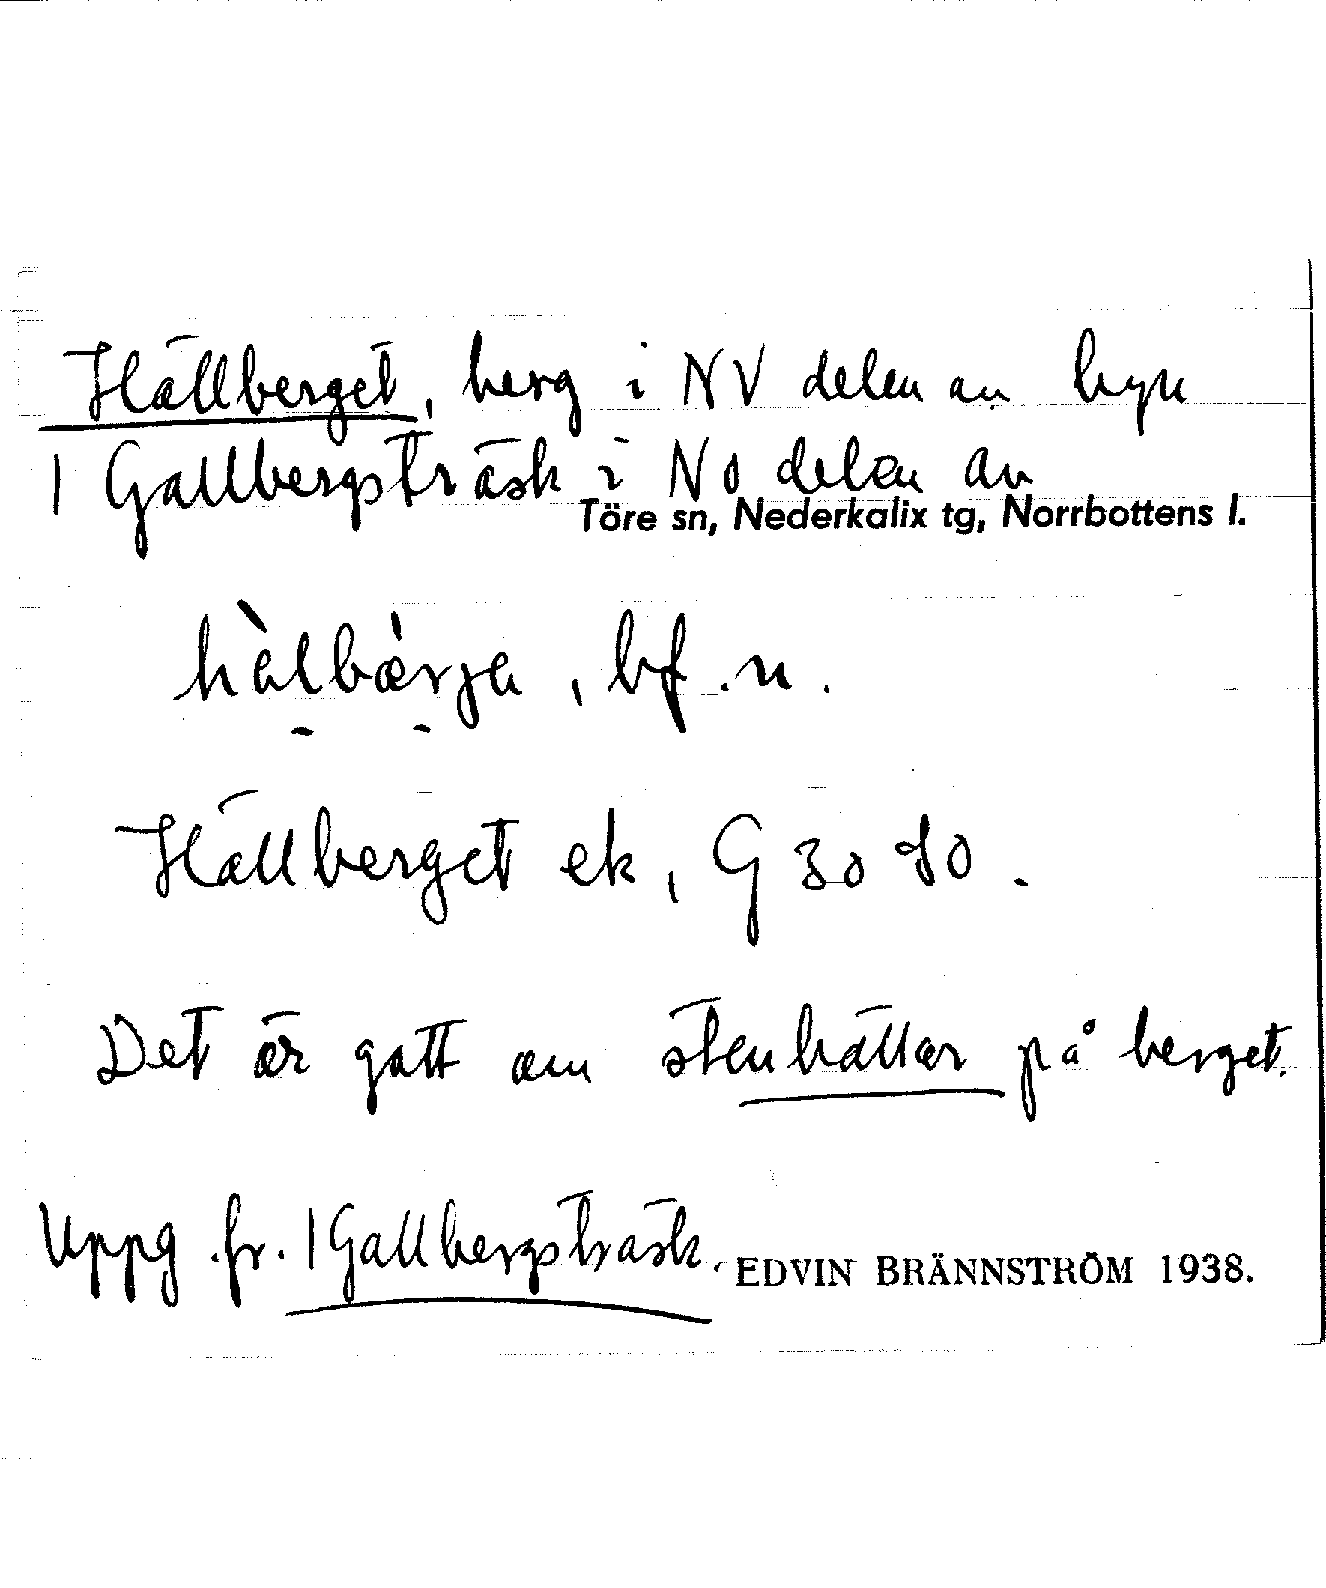 Hällberget, berg i NV delen av byn
| Gallbergsträsk i NO delen av
Töre sn, Nederkalix tg, Norrbottens l.
hàlbæ̀rja, bf. n.
Hällberget ek, G 30 80.
Det är gott om stenhällar på berget.
Uppg. fr. | Gallbergsträsk. EDVIN BRÄNNSTRÖM 1938.